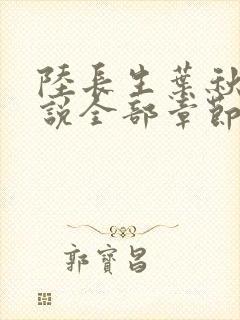 陸長生葉秋
說全部章節
郭寶昌